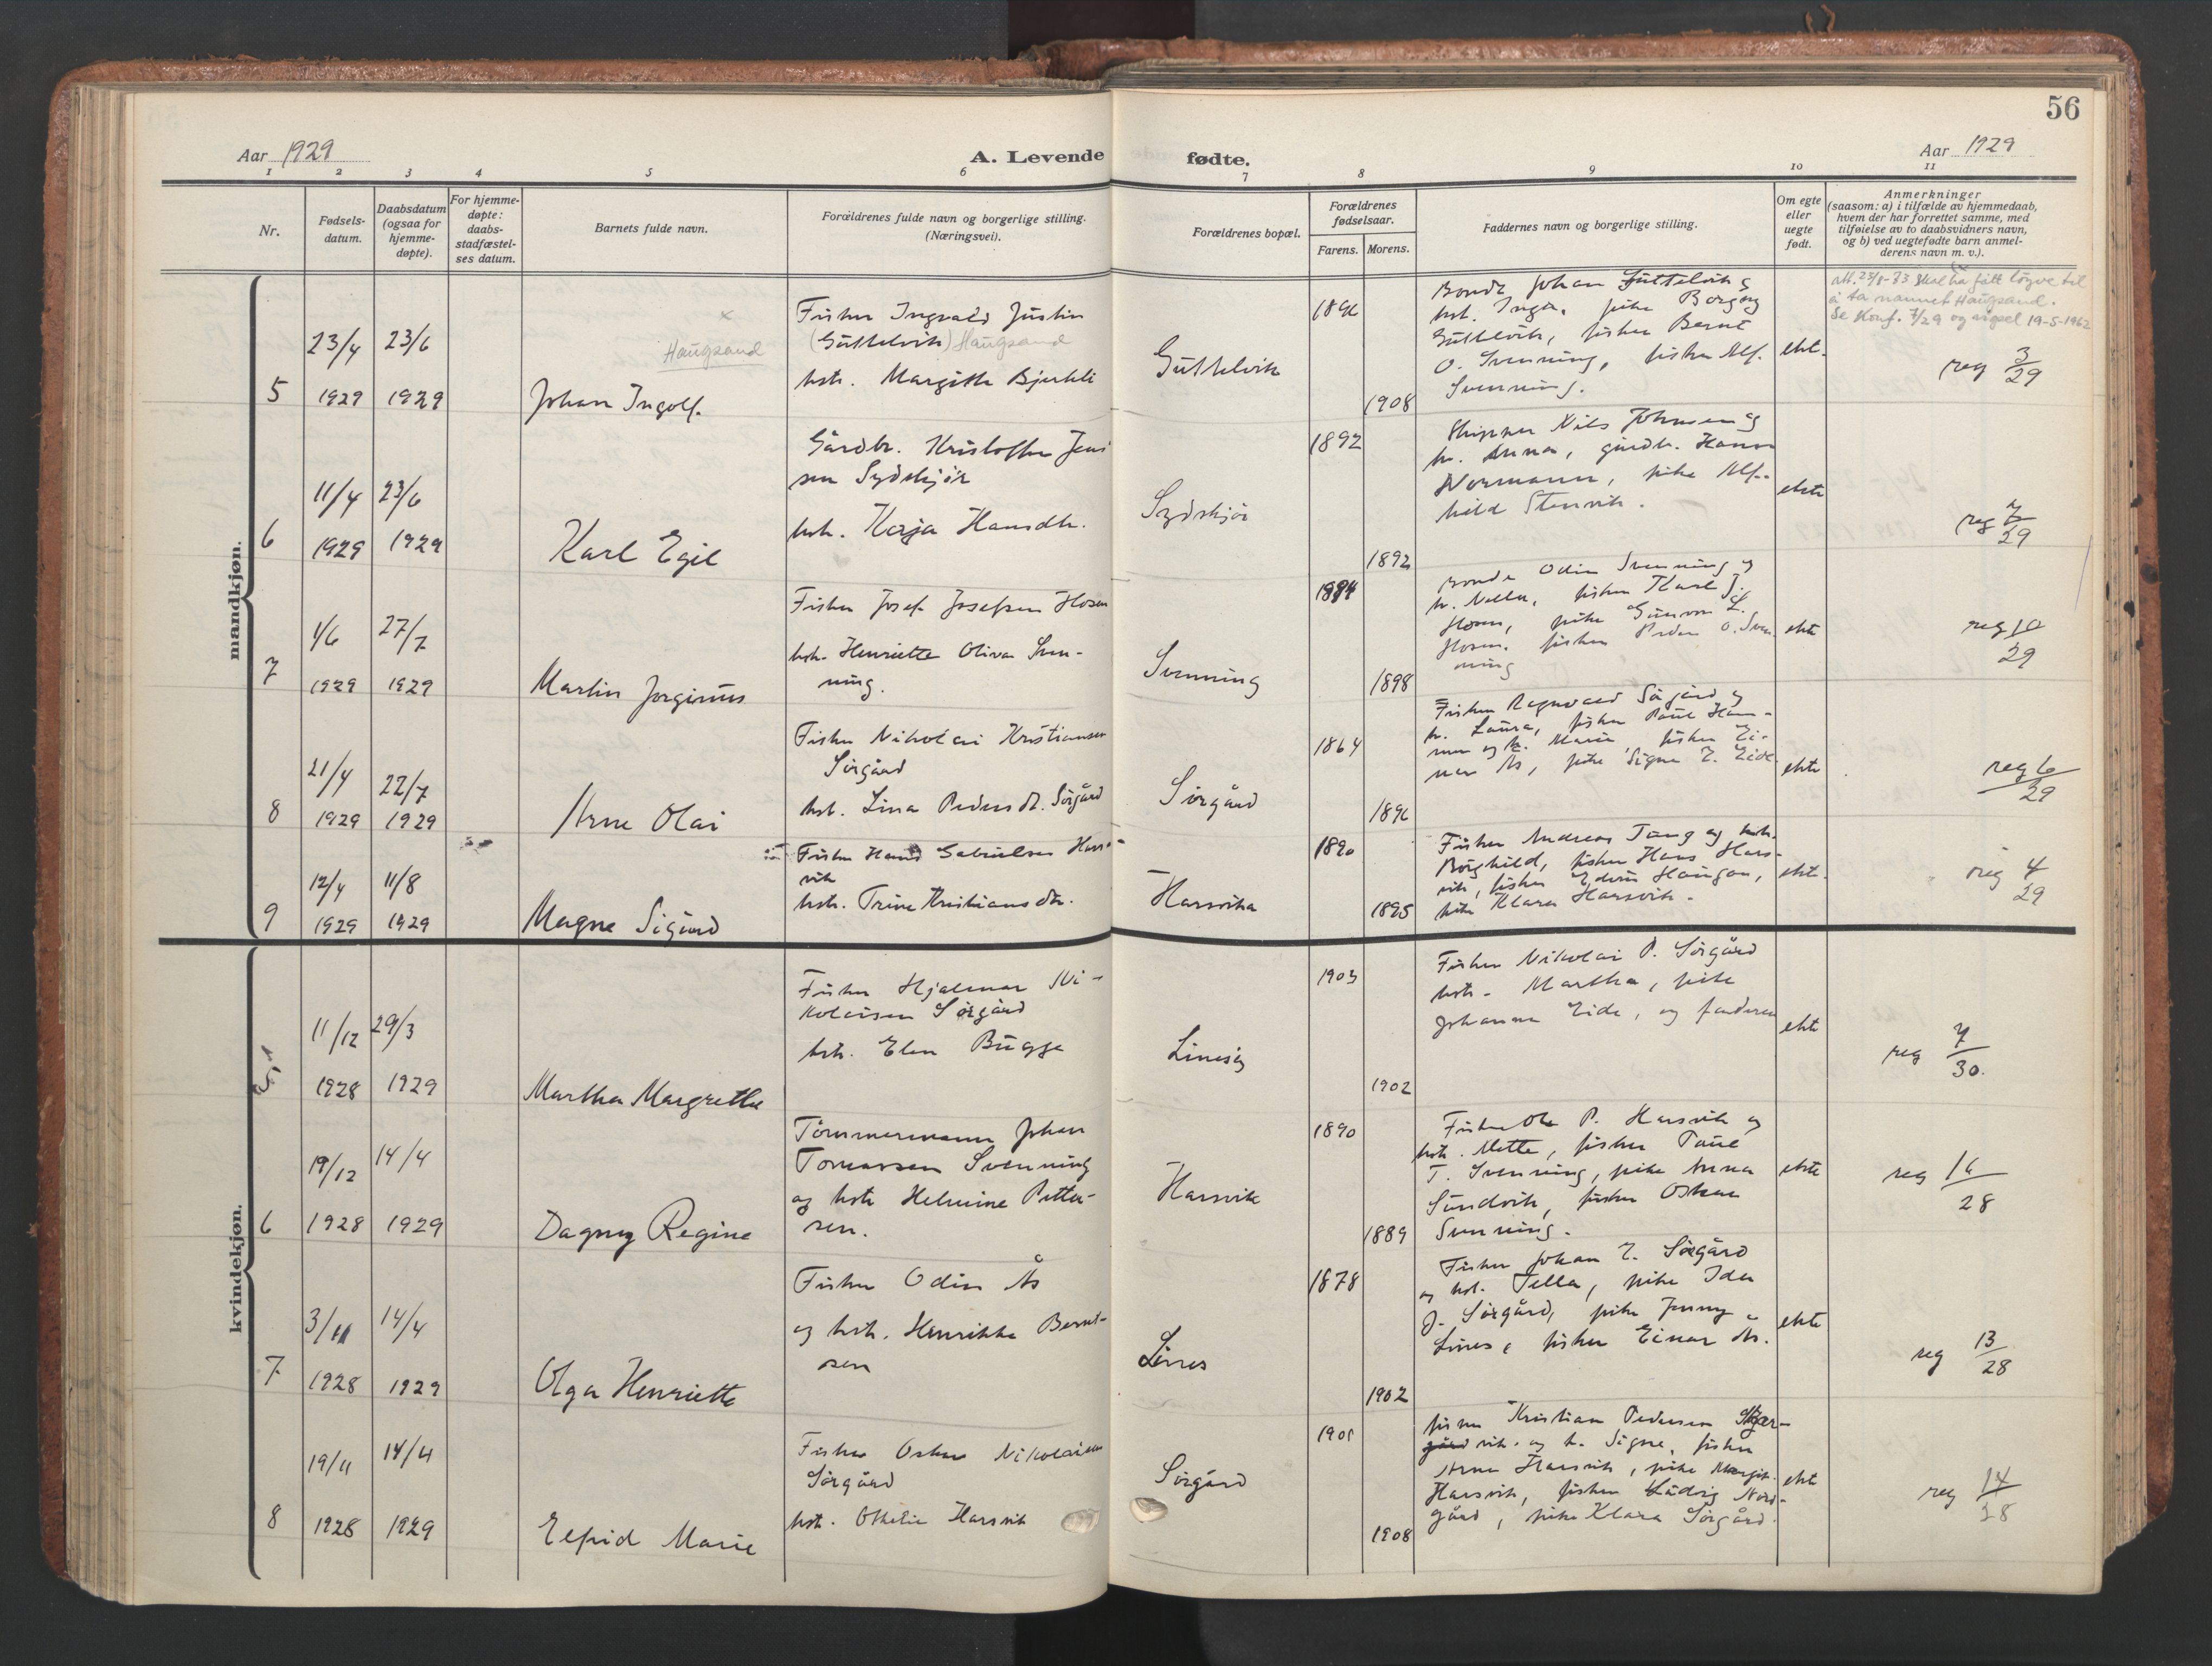 56
Aar 1929
A. Levende fødte.
Aar 1929
1 2 3 4 5 6 7 8 9 10 11
Nr.
Fødsels-
datum.
Daabsdatum
(ogsaa for
hjemme-
døpte).
For hjemme-
døpte:
daabs-
stadfæstel-
ses datum.
Barnets fulde navn.
Forældrenes fulde navn og borgerlige stilling.
(Næringsvei).
Forældrenes bopæl.
Forældrenes
fødselsaar.
Farens. Morens.
Faddernes navn og borgerlige stilling.
Om egte
eller
uegte
født.
Anmerkninger
(saasom: a) i tilfælde av hjemmedaab,
hvem der har forrettet samme, med
tilføielse av to daabsvidners navn,
og b) ved uegtefødte barn anmel-
derens navn m. v.).
mandkjøn.
5
23/4
1929
23/6
1929
Haugsand
Johan Ingolf.
Fisker Ingvald Justin
(Guttelvik) Haugsand
hstr. Margith Bjerkli
Guttelvik
1908
Bonde Johan Guttelvik og
hst. Inga, pike Borgny
Guttelvik, fisker Bernt
O. Svenning, fisker Alf.
Svenning.
ekt.
att. 23/8-73 Skal ha fått løyve til
å ta namnet Haugsand.
Se Konf. 7/29 og vigsel 19-5-1962
reg 3/29
6
11/4
1929
23/6
1929
Karl Egil
Gårdbr. Kristoffer Jens
sen Sydskjør
hstr. Kaja Hansdtr.
Sydskjør
1892
1892
Skipper Nils Johnsen og
h. Anna, gårdbr. Hans
Normann, pike Alf-
hild Stenvik.
ekte
reg 2/29
7
1/6
1929
27/7
1929
Martin Jorginus
Fisker Josef Josefsen Hosen
hstr. Henriette Oliva Sven-
ning.
Svenning
1894
1898
Bonde Odin Svenning og
h. Nella, fisker Karl J.
Hosen, pike Gunvor L.
Hosen, fisker Peder O. Sven-
ning
ekte
reg 10/29
8
21/4
1929
22/7
1929
Arne Olai
Fisker Nikolai Kristiansen
Sørgård
hst. Lina Pedersdtr. Sørgård
Sørgård
1864
1896
Fisker Ragnvald Sørgård og
h. Laura, fisker Paul Han-
sen og h. Marie, fisker Ei-
nar Ås, pike Signe E. Eide
ekte
reg 6/29
9
12/4
1929
11/8
1929
Magne Sigurd
Fisker Hans Gabrielsen Hars-
vik
hstr. Trine Kristiansdtr.
Harsvika
1890
1895
Fisker Andreas Tung og hstr.
Borghild, fisker Hans Hars-
vik, fisker Edvin Haugan,
pike Klara Harsvik.
ekte.
reg 4/29
kvindekjøn.
5
11/12
1928
29/3
1929
Martha Margrethe
Fisker Hjalmar Ni-
kolaisen Sørgård
hstr. Elen Bugge
Linesøy
1903
1902
Fisker Nikolai P. Sørgård
hstr. Martha, pike
Johanna Eide, og faderen
ekte
reg 7/30.
6
19/12
1928
14/4
1929
Dagny Regine
Tømmermann Johan
Tomassen Svenning
og hstr Helmine Petter-
sen.
Harsvik
1890
1889
Fisker Ole P. Harsvik og
hstr. Mette, fisker Paul
T. Svenning, pike Anna
Sundvik, fisker Oskar
Svenning.
ekte
reg 16/28
7
3/11
1928
14/4
1929
Olga Henriette
Fisker Odin Ås
og hstr. Henrikke Bernt-
sen
Lines
1878
1902
Fisker Johan E. Sørgård
og hst. Tella, pike Ida
J. Sørgård, pike Jenny
Lines, fisker Einar Ås.
ekte
reg 13/28
8
19/11
1928
14/4
1929
Elfrid Marie
Fisker Oskar Nikolaisen
Sørgård
hstr. Othelie Harsvik
Sørgård
1901
1908
fisker Kristian Pedersen
vik. og h. Signe, fisker
Arne Harsvik, pike Margit
Harsvik, fisker Ludvig Nord-
gård, pike Klara Sørgård.
ekte
reg 14/28